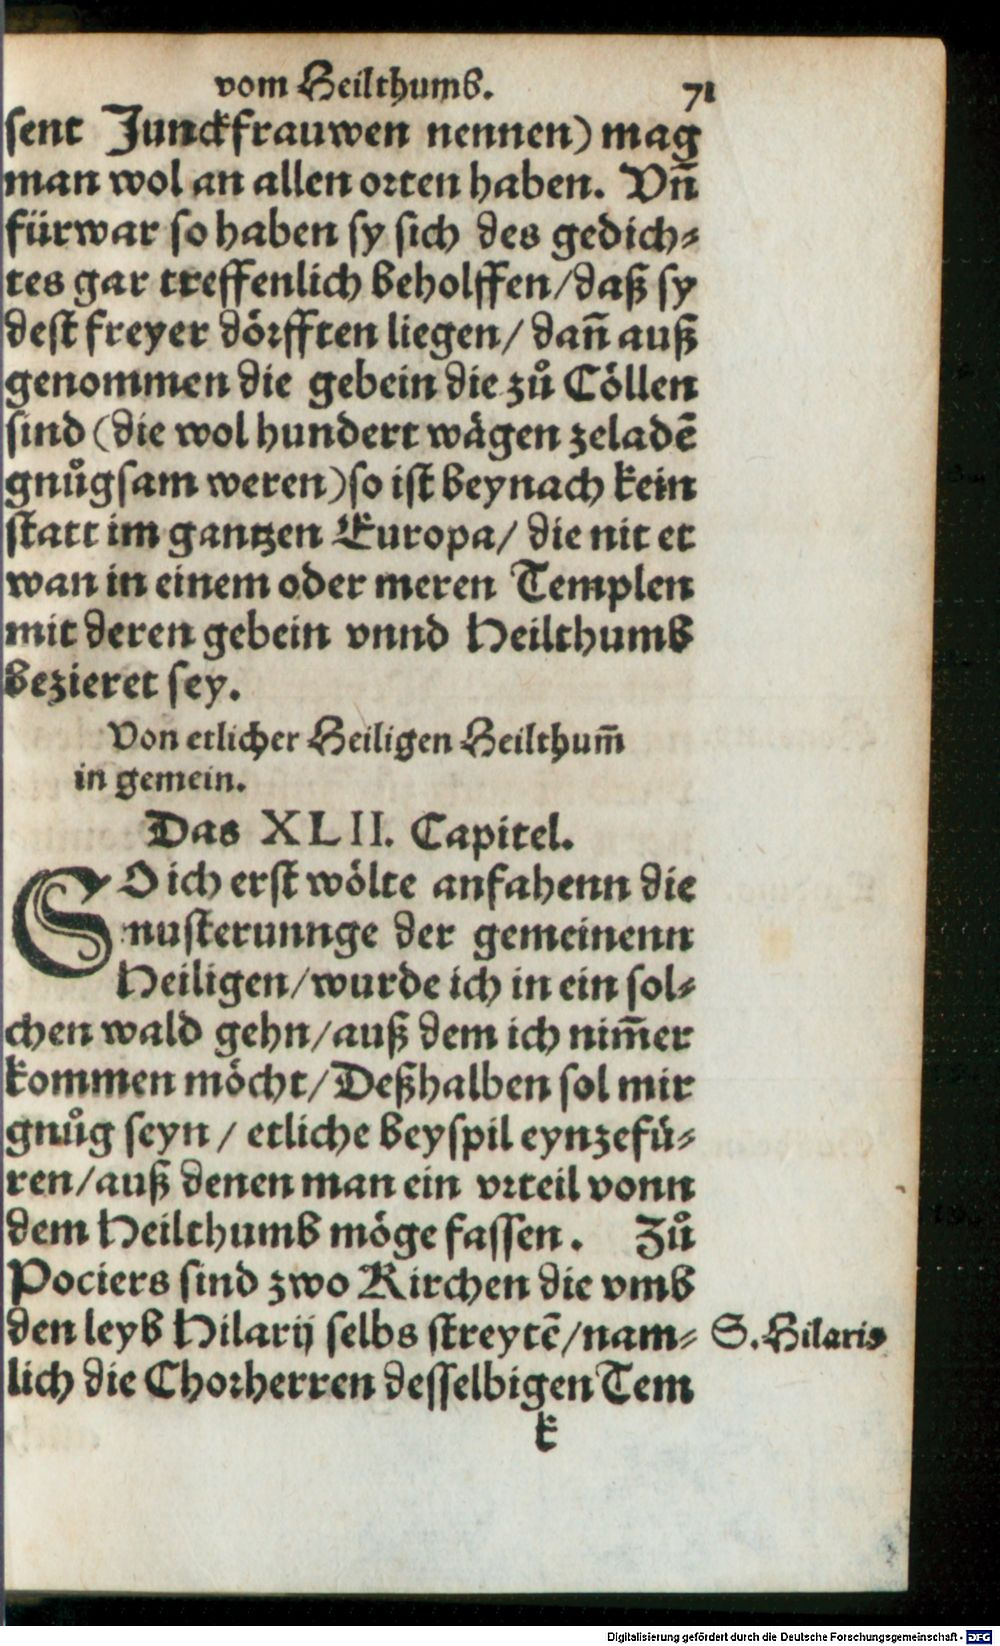 vom Heilthumb. 71
sent Junckfrauwen nennen) mag
man wol an allen orten haben. Vñ
fürwar so haben sy sich des gedich⸗
tes gar treffenlich beholffen/daß sy
dest freyer dörfften liegen/ dañ auß
genommen die gebein die zů Cöllen
sind (die wol hundert wägen zeladẽ
gnůgsam weren) so ist beynach kein
statt im gantzen Europa/ die nit et
wan in einem oder meren Templen
mit deren gebein vnnd Heilthumb
bezieret sey.
Von etlicher Heiligen Heilthum̃
in gemein.
Das XLII. Capitel.
SO ich erst wölte anfahenn die
musterunnge der gemeinenn
Heiligen/wurde ich in ein sol⸗
chen wald gehn/auß dem ich nim̃er
kommen möcht/Deßhalben sol mir
gnůg seyn / etliche beyspil eynzefü⸗
ren/auß denen man ein vrteil vonn
dem Heilthumb möge fassen. Zů
Pociers sind zwo Kirchen die vmb
den leyb Hilarij selbs streytẽ/nam⸗ S. Hilaris
lich die Chorherren desselbigen Tem
k
Digitalisierung gefördert durch die Deutsche Forschungsgemeinschaft - DFG